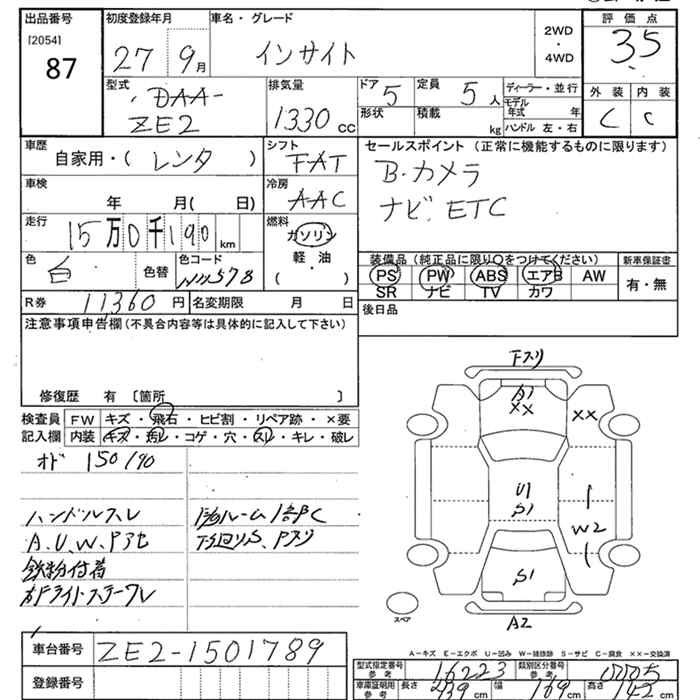 出品番号 初度登録年月 車名・グレード 2WD・4WD 評価点
[2054]
87 27 9月 インサイト 3.5
型式 排気量 ドア 定員 ディーラー・並行 外装 内装
DAA-
ZE2 1330 cc 5 5人 モデル年式 年 C C
形状 積載 kg ハンドル 左・右
車歴 シフト セールスポイント (正常に機能するものに限ります)
自家用・(レンタ) FAT B・カメラ
車検 冷房 ナビ、ETC
年 月( 日) AAC
走行 燃料
15万0千190km ガソリン・軽油
( )
色 色替 色コード 装備品(純正品に限り○をつけてください) 新車保証書
白 NH578 PS PW ABS エアB AW 有・無
SR ナビ TV カワ
R券 11,360円 名変期限 月 日 後日品
注意事項申告欄(不具合内容等は具体的に記入して下さい)
修復歴 有 〔箇所 〕
検査員記入欄 FW キズ・飛石・ヒビ割・リペア跡・×要
内装 キズ・汚レ・コゲ・穴・スレ・キレ・破レ
オド 150190
ハンドルスレ
A.U.W.P3セ 下廻りS、Pスリ
鉄粉付着
Fスリ
××
××
U1
S1
W2
S1
A2
スペア
A-キズ E-エクボ U-凹み W-補修跡 S-サビ C-腐食 ××-交換済
車台番号 ZE2-1501789
登録番号
型式指定番号 参考 16223 類別区分番号 参考 0005
車庫証明用 参考 長さ 439cm 幅 169cm 高さ 142cm